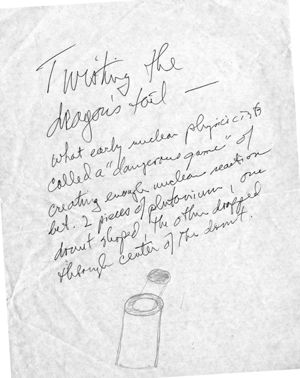 Twisting the
dragon's tail —
What early nuclear physicists
called a "dangerous game" of
creating enough nuclear reaction
bet. 2 pieces of plutonium, one
donut shaped, the other dropped
through center of the donut.